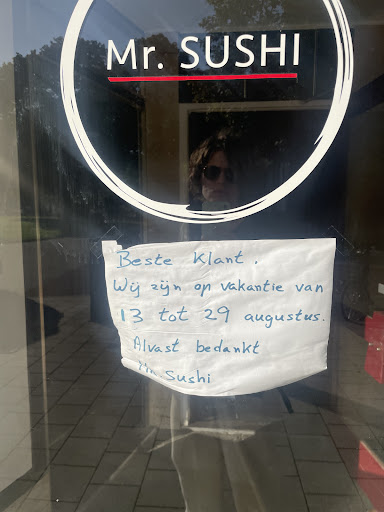 Mr. SUSHI
Beste Klant.
Wij zijn op vakantie van
13 tot 29 augustus.
Alvast bedankt
Mr. Sushi